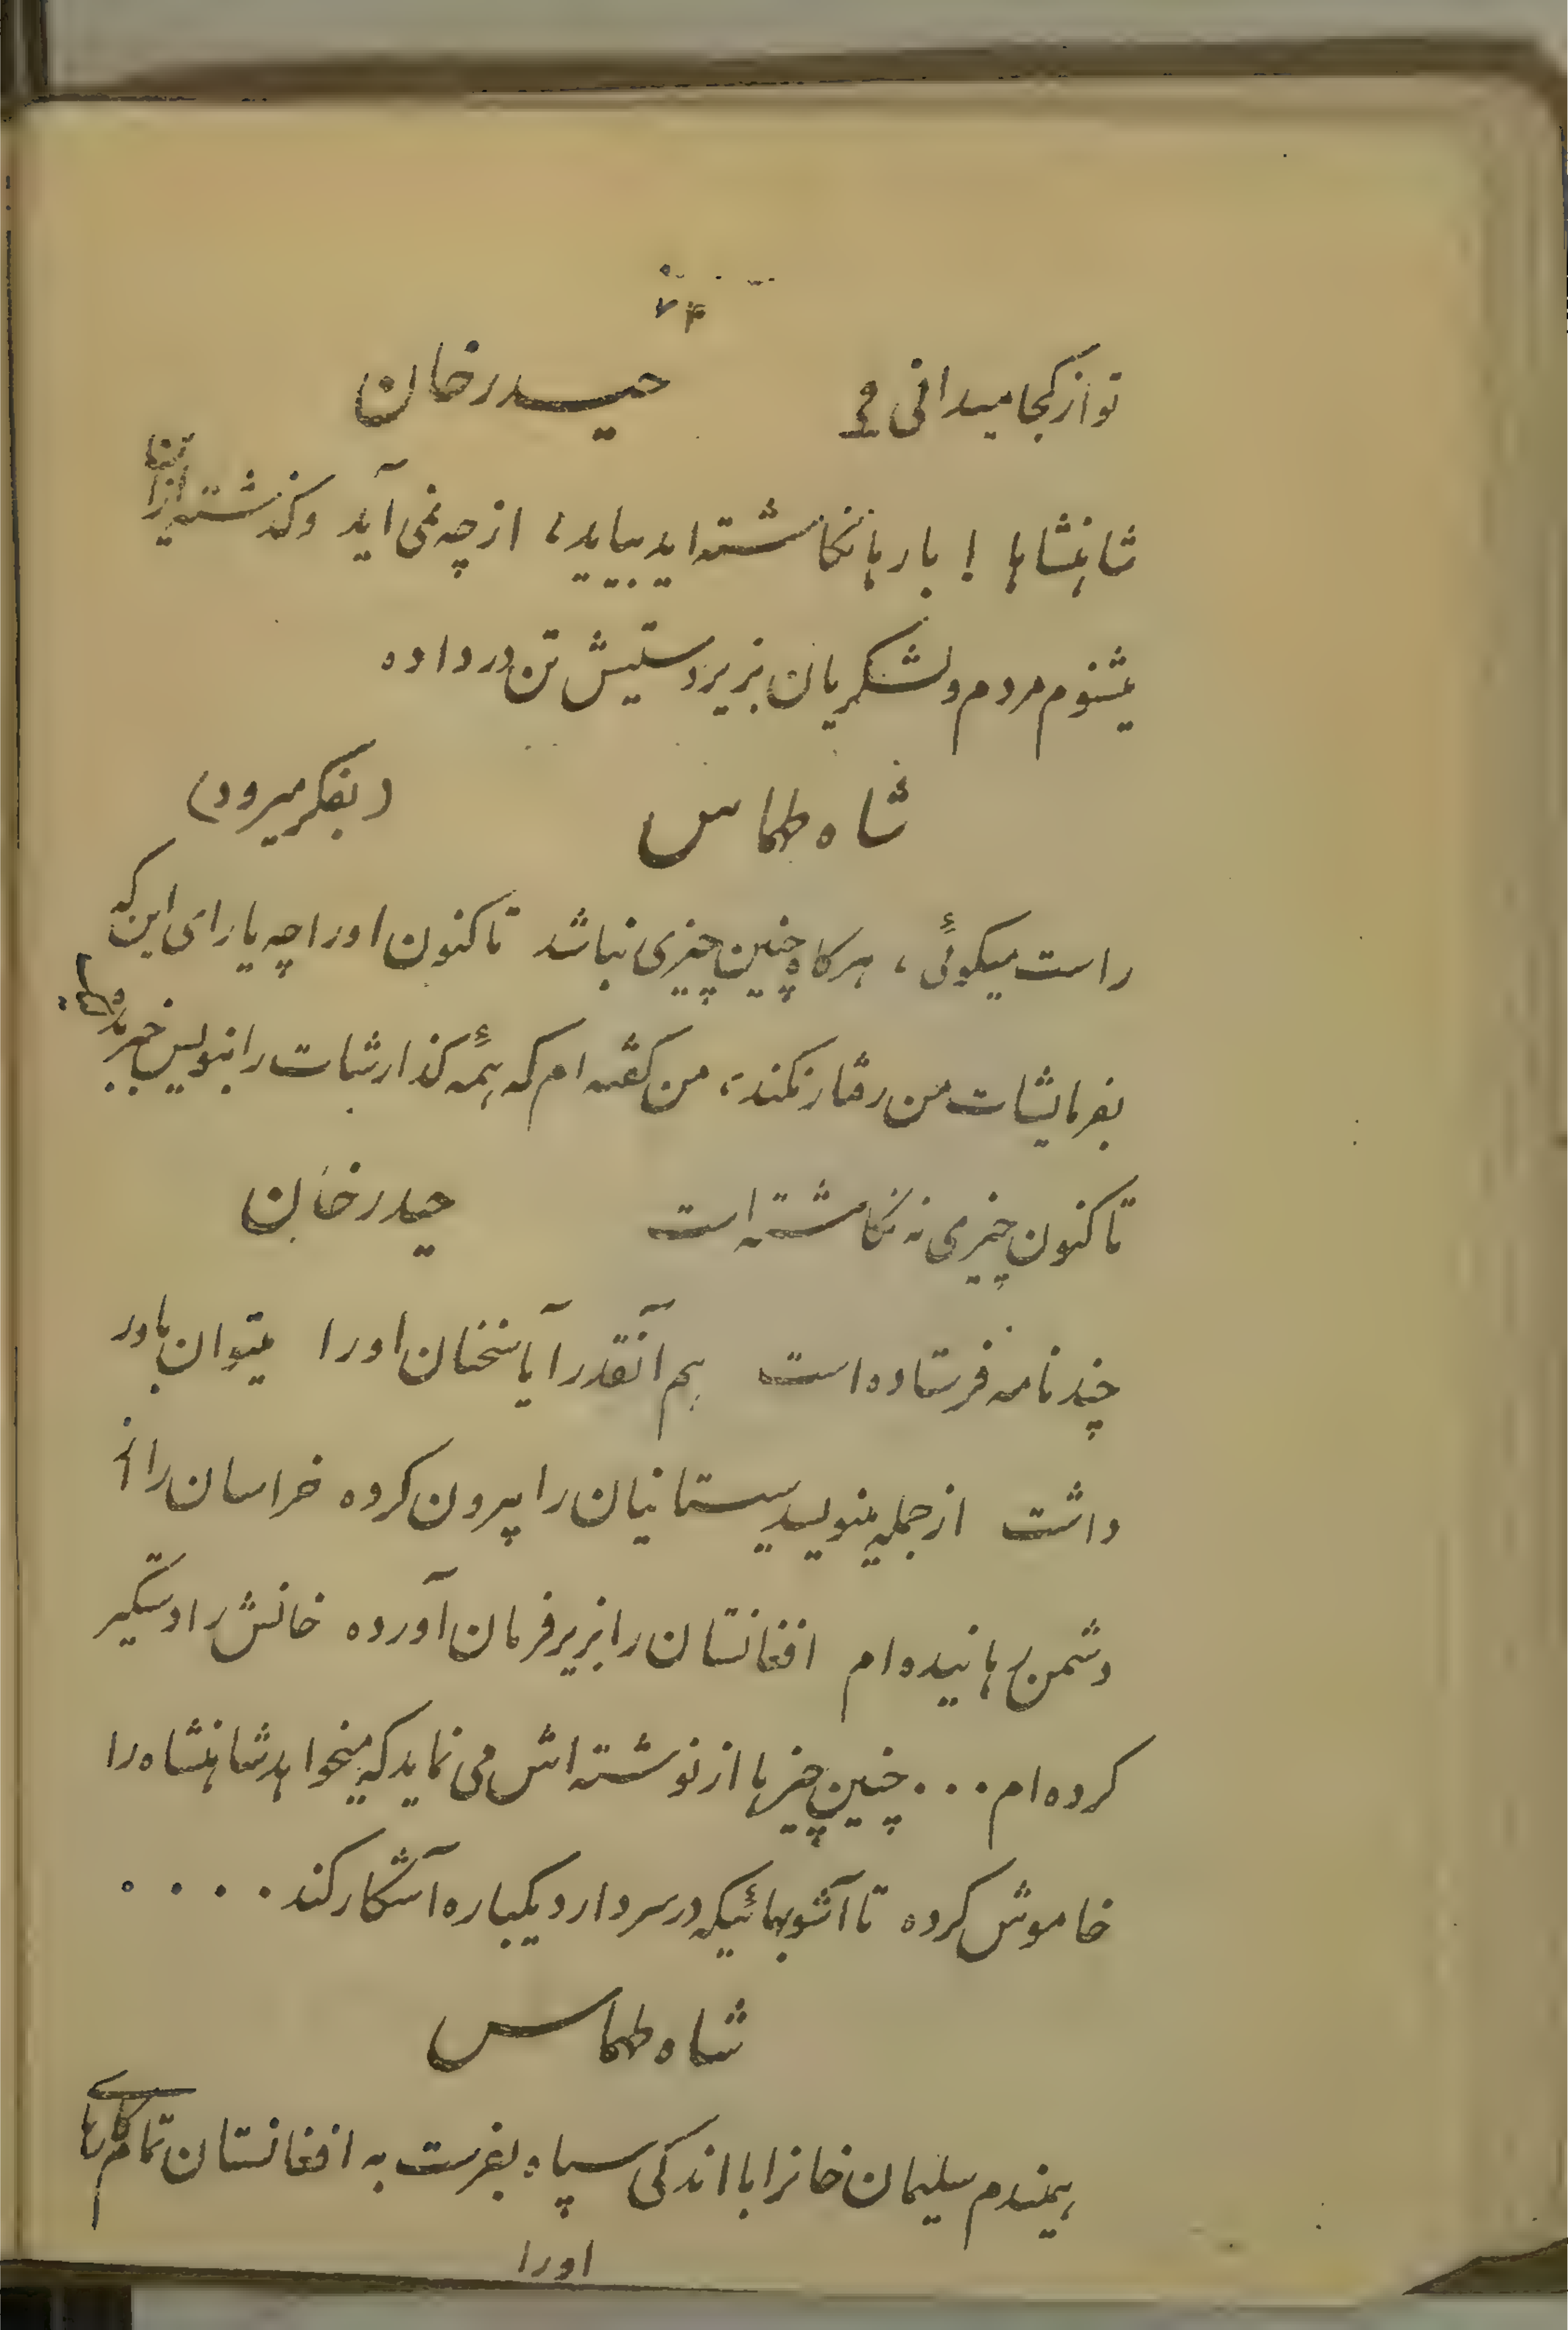 ۷۴
تو از کجا میدانی ؟ حیدرخان
شاهنشاها ! بارها نکاشته اید بیاید، از چه نمی آید وکذشته ازان
میشنوم مردم ولشکریان بزیردستیش تن درداده
شاه طهماس (بفکر میرود)
راست میکوئی ، هرکاه چنین چیزی نباشد تاکنون اورا چه یارای این که
بفرمایشات من رفتار نکند ، من کفته ام که همۀ کذارشات را بنویس خبر بده
تاکنون چیزی نه نکاشته است حیدرخان
چند نامه فرستاده است هم آنقدر آیا سخنان اورا میتوان باور
داشت از جمله مینویسد سیستانیان را بیرون کرده خراسان را از
دشمن رهانیده ام افغانستان را بزیر فرمان آورده خانش را دستکیر
کرده ام . . . چنین چیزها از نوشته اش می نماید که میخواهد شاهنشاه را
خاموش کرده تا آشوبهائیکه در سر دارد یکباره آشکار کند . . . .
شاه طهماس
همیندم سلیمان خانرا با اندکی سپاه بفرست به افغانستان تمام کارهای
اورا